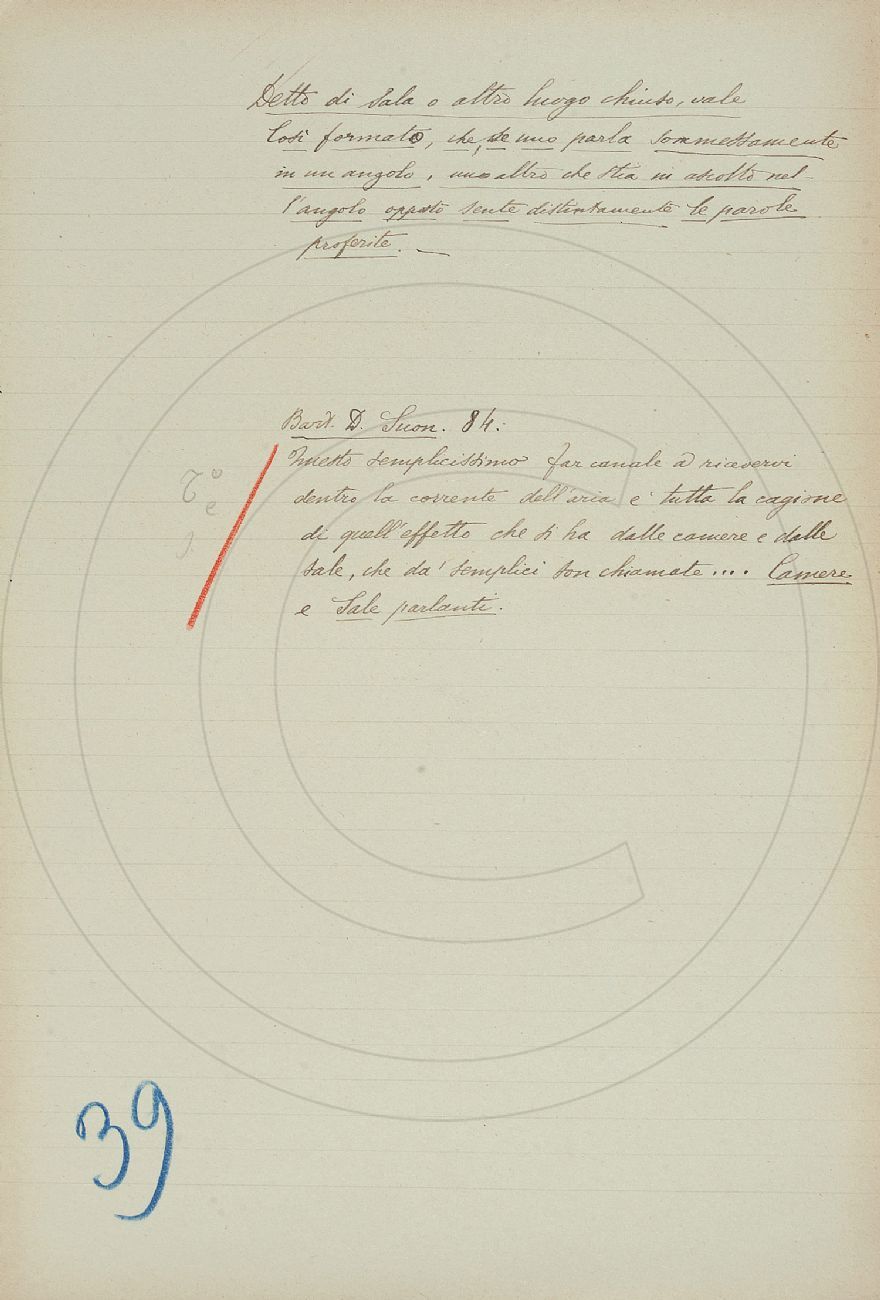 Detto di Sala o altro luogo chiuso, vale
Così formato, che, se uno parla sommessamente
in un angolo, un altro che stia in ascolto nel-
l'angolo opposto sente distintamente le parole
proferite. —
Bart. D. Suon. 84:
Questo semplicissimo far canale a ricevervi
dentro la corrente dell'aria e' tutta la cagione
di quell'effetto che si ha dalle camere e dalle
sale, che da' semplici son chiamate.... Camere
e Sale parlanti.
39